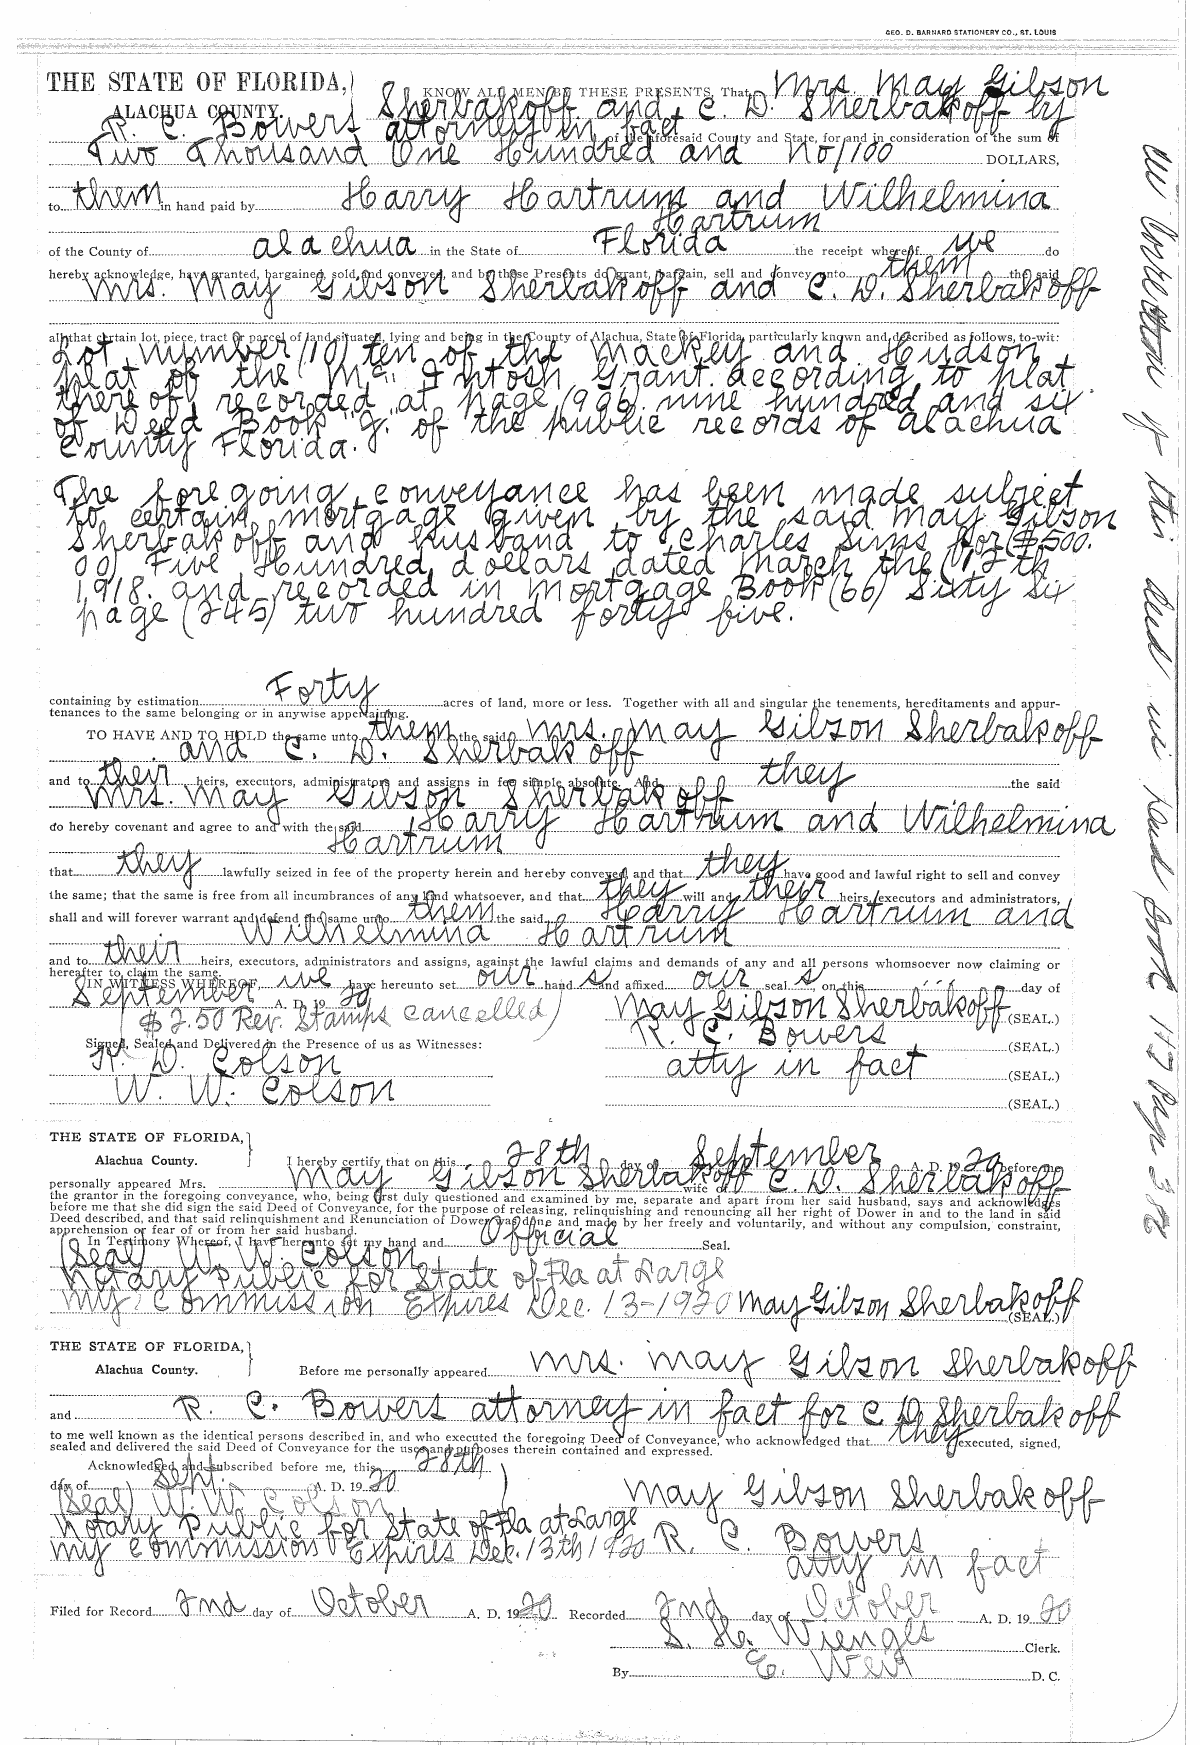 GEO. D. BARNARD STATIONERY CO., ST. LOUIS
THE STATE OF FLORIDA,} KNOW ALL MEN BE THESE PRESENTS, That Mrs. May Gibson
ALACHUA COUNTY. Sherbakoff and C. D. Sherbakoff by
R. C. Bowers attorney in fact of the aforesaid County and State, for and in consideration of the sum of
Two Thousand One Hundred and No/100 DOLLARS,
to them in hand paid by Harry Hartrum and Wilhelmina
Hartrum
of the County of alachua in the State of Florida the receipt whereof we do
hereby acknowledge, have granted, bargained, sold and conveyed, and by these Presents do grant, bargain, sell and convey unto them the said
Mrs. May Gibson Sherbakoff and C. D. Sherbakoff
all that certain lot, piece, tract or parcel of land situated, lying and being in the County of Alachua, State of Florida, particularly known and described as follows, to-wit:
Lot number (10) ten of the Mackey and Hudson
plat of the Mc Intosh Grant according to plat
there of recorded at page (906) nine hundred and six
of Deed Book "J." of the public records of alachua
County Florida.
The foregoing conveyance has been made subject
to certain mortgage given by the said may Gibson
Sherbakoff and husband to Charles Sims for ($500.
00) Five Hundred dollars dated March the (12th
1918. and recorded in mortgage Book (66) Sixty Six
page (245) two hundred forty five.
containing by estimation Forty acres of land, more or less. Together with all and singular the tenements, hereditaments and appur-
tenances to the same belonging or in anywise appertaining.
TO HAVE AND TO HOLD the same unto them the said Mrs. May Gibson Sherbakoff
and C. D. Sherbakoff
and to their heirs, executors, administrators and assigns in fee simple absolute. And they the said
Mrs. May Gibson Sherbakoff
do hereby covenant and agree to and with the said Harry Hartrum and Wilhelmina
Hartrum
that they lawfully seized in fee of the property herein and hereby conveyed and that they have good and lawful right to sell and convey
the same; that the same is free from all incumbrances of any kind whatsoever, and that they will and their heirs, executors and administrators,
shall and will forever warrant and defend the same unto them the said Harry Hartrum and
Wilhelmina Hartrum
and to their heirs, executors, administrators and assigns, against the lawful claims and demands of any and all persons whomsoever now claiming or
hereafter to claim the same.
IN WITNESS WHEREOF, we have hereunto set our hand s and affixed our seal s on this day of
September A. D. 19 20
($2.50 Rev. Stamps cancelled) May Gibson Sherbakoff (SEAL.)
R. C. Bowers
Signed, Sealed and Delivered in the Presence of us as Witnesses: (SEAL.)
H. D. Colson atty in fact (SEAL.)
W. W. Colson (SEAL.)
THE STATE OF FLORIDA,}
Alachua County. I hereby certify that on this 28th day of September A. D. 19 20 before me
personally appeared Mrs. May Gibson Sherbakoff wife of C. D. Sherbakoff
the grantor in the foregoing conveyance, who, being first duly questioned and examined by me, separate and apart from her said husband, says and acknowledges
before me that she did sign the said Deed of Conveyance, for the purpose of releasing, relinquishing and renouncing all her right of Dower in and to the land in said
Deed described, and that said relinquishment and Renunciation of Dower was done and made by her freely and voluntarily, and without any compulsion, constraint,
apprehension or fear of or from her said husband.
In Testimony Whereof, I have hereunto set my hand and Official Seal.
(Seal) W. W. Colson
Notary Public for State of Fla at Large
My Commission Expires Dec. 13-1920 May Gibson Sherbakoff
(SEAL.)
THE STATE OF FLORIDA,}
Alachua County. Before me personally appeared Mrs. May Gibson Sherbakoff
and R. C. Bowers attorney in fact for C D Sherbakoff
to me well known as the identical persons described in, and who executed the foregoing Deed of Conveyance, who acknowledged that they executed, signed,
sealed and delivered the said Deed of Conveyance for the uses and purposes therein contained and expressed.
Acknowledged and subscribed before me, this 28th
day of Sept. A. D. 19 20
(Seal) W. W. Colson May Gibson Sherbakoff
Notary Public for State of Fla at Large
My Commission Expires Dec. 13th 1920 R. C. Bowers
atty in fact
Filed for Record 2nd day of October A. D. 19 20 Recorded 2nd day of October A. D. 19 20
S. H. Wienges Clerk.
By E. Weir D. C.
of this deed see Deed Book 117 Page 388